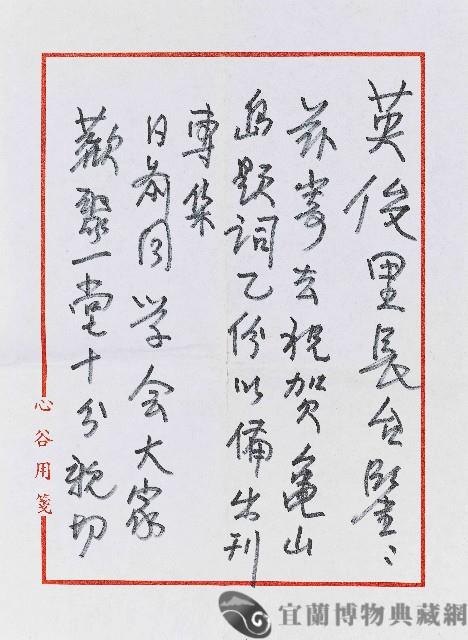 英俊里長台鑒:
茲寄去祝賀龜山
島題詞乙份以備出刊
專集
日前同学会大家
歡聚一堂十分親切
心谷用箋
宜蘭博物典藏網